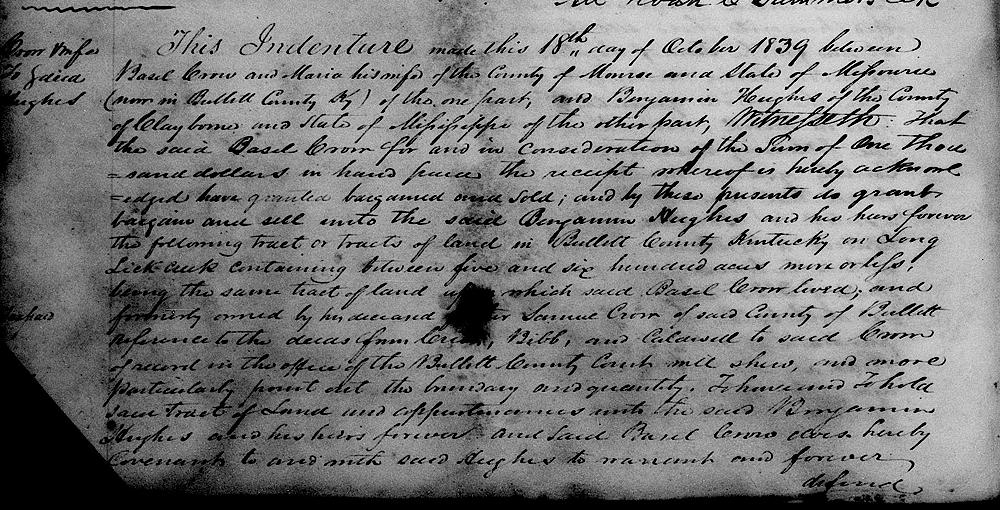 Att Noah C Summers Clk
Crow & wife
To Deed
Hughes
This Indenture made this 18th day of October 1839 between
Basel Crow and Maria his wife of the County of Monroe and State of Missourie
(now in Bullett County Ky) of the one part, and Benjamin Hughes of the County
of Clayborne and State of Mississippi of the other part, Witnesseth. That
the said Basel Crow for and in consideration of the Sum of One Thou
=sand dollars in hand paid the receipt whereof is hereby acknowl
=edged have granted bargained and sold; and by these presents do grant
bargain and sell unto the said Benjamin Hughes and his heirs forever
the following tract or tracts of land in Bullett County Kentucky on Long
Lick creek containing between five and six hundred acres more or less,
being the same tract of land which said Basel Crow lived, and
formerly owned by his deceased Samuel Crow of said County of Bullett
reference to the deeds from Bibb, and Caldwell to said Crow
of record in the office of the Bullett County Court will shew, and more
particularly point out the boundary and quantity. To have and To hold
said Tract of Land and appurtenances unto the said Benjamin
Hughes and his heirs forever and said Basel Crow does hereby
Covenant to and with said Hughes to warrant and forever
defend,